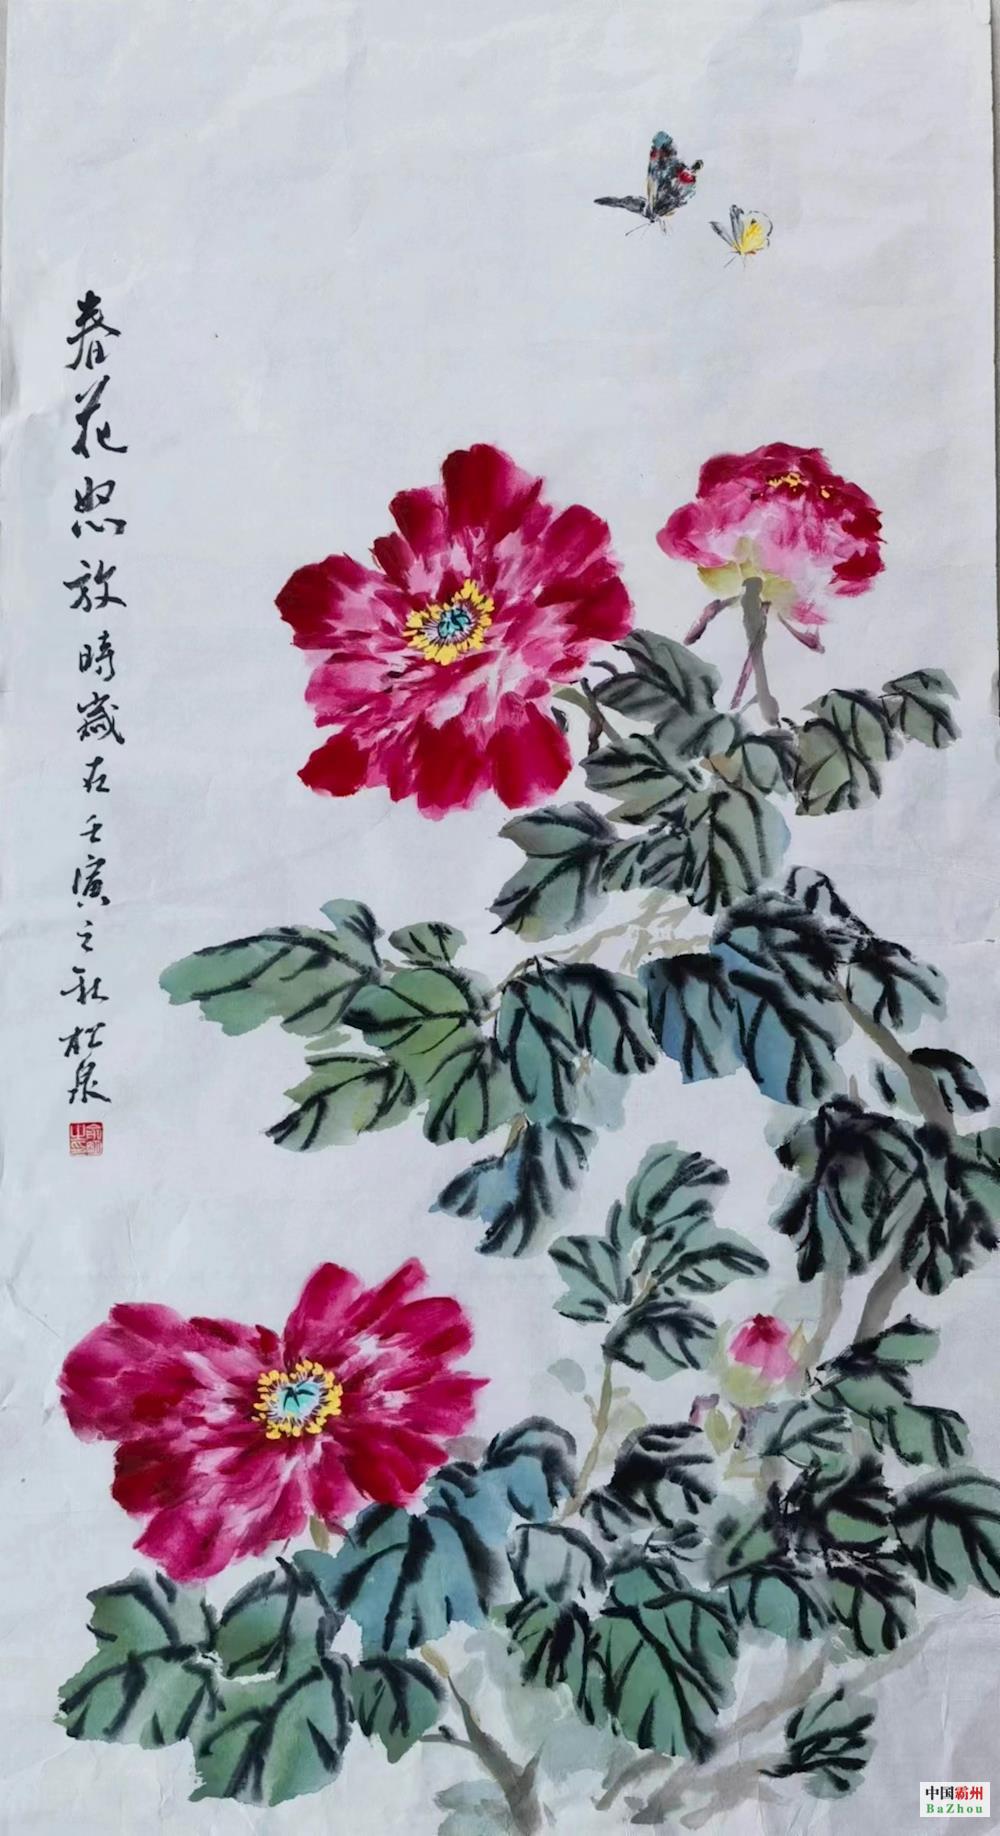 春花怒放時歲在壬寅之秋松泉
中国霸州
BaZhou